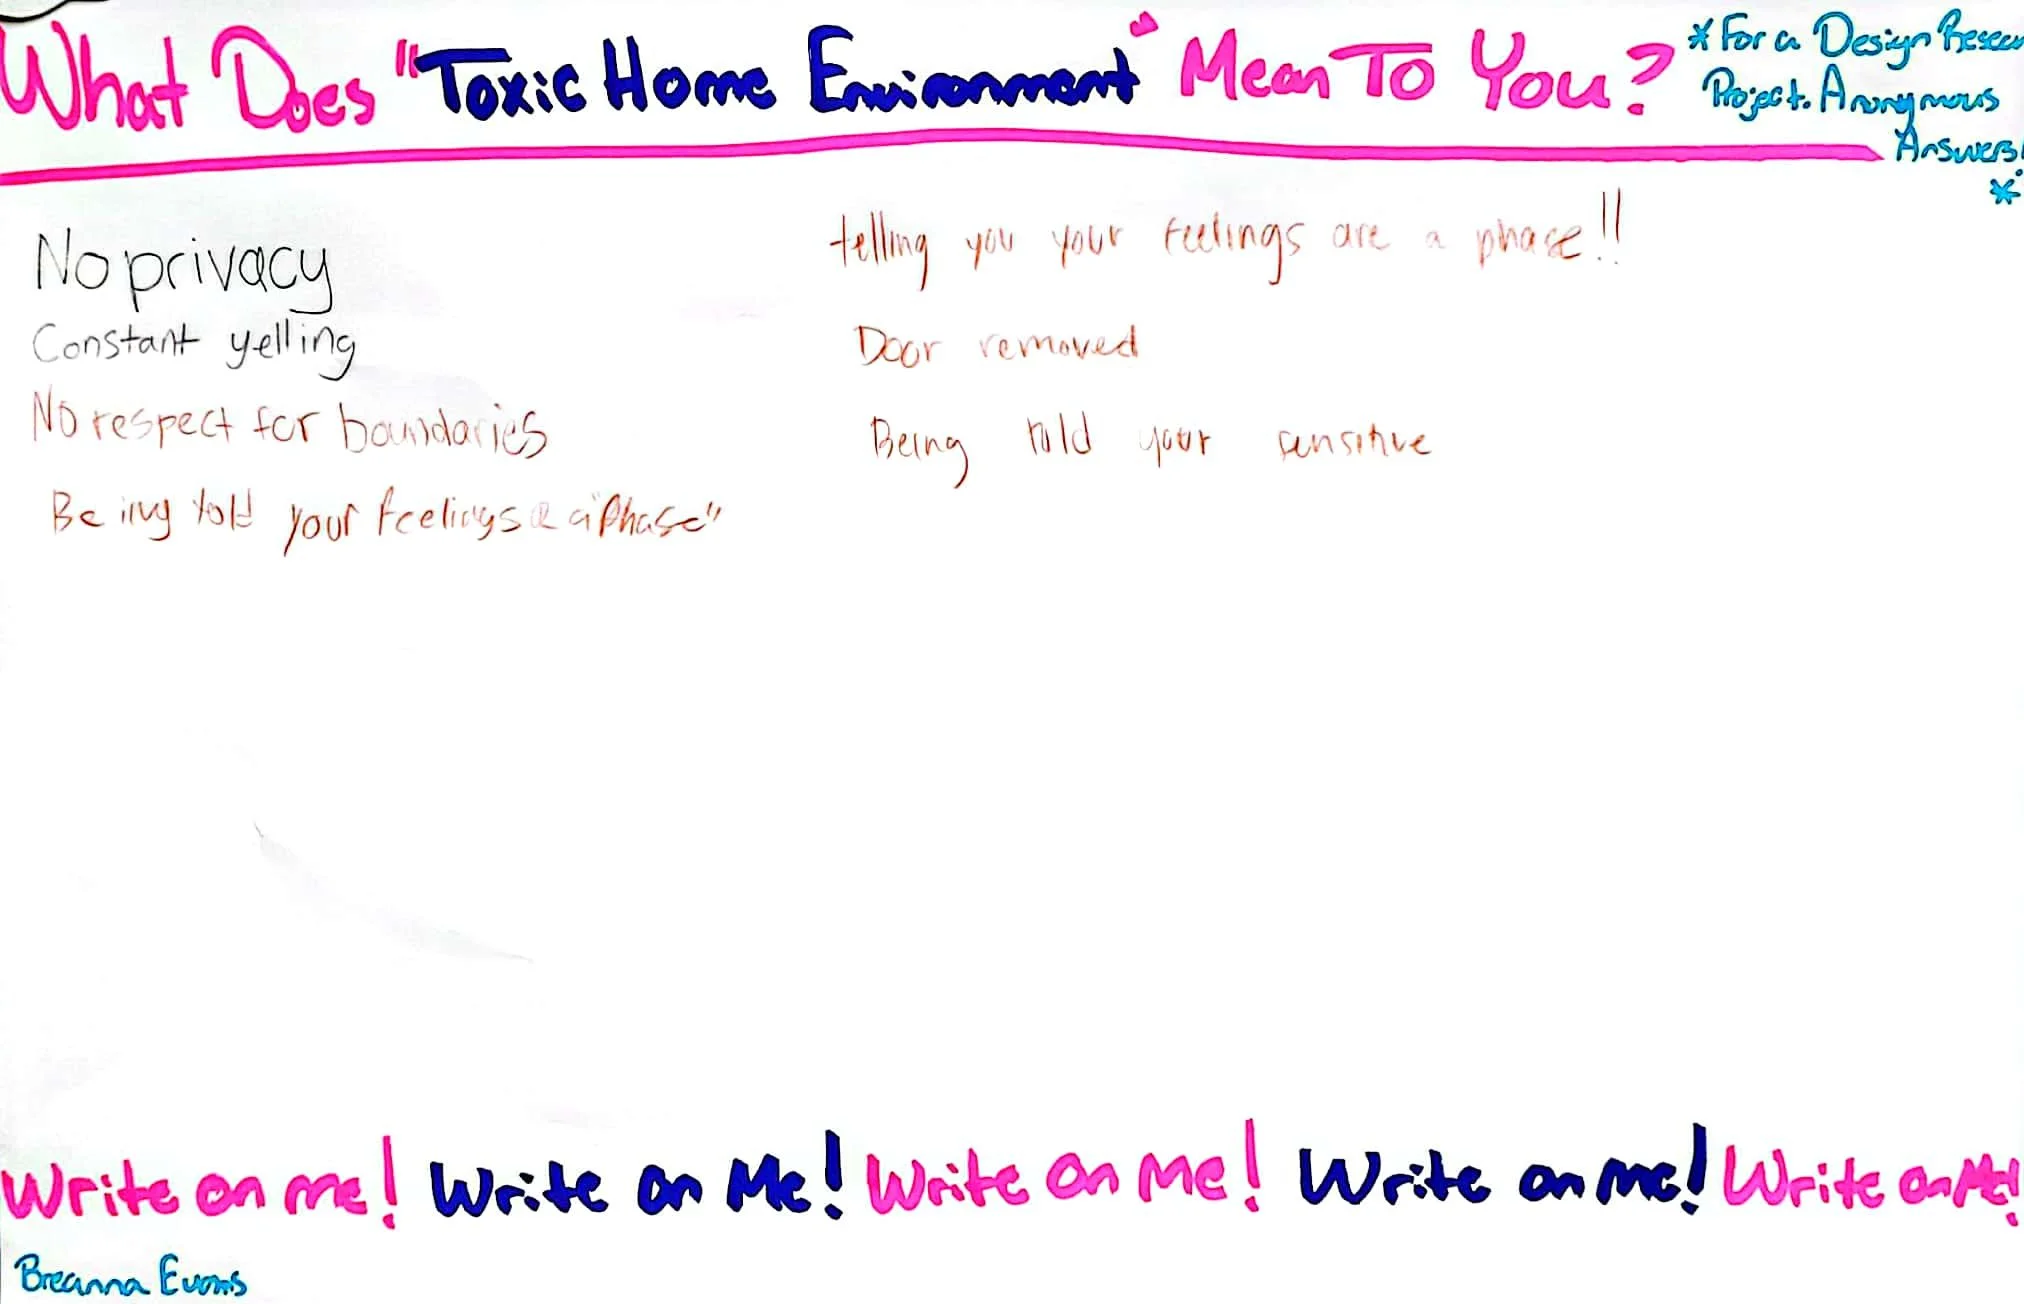 What Does "Toxic Home Environment" Mean To You?
*For a Design
Project. Anonymous
Answers!
*
No privacy
Constant yelling
No respect for boundaries
Being told your feelings a "Phase"
telling you your feelings are a phase!!
Door removed
Being told your sensitive
Write on me! Write on Me! Write on me! Write on me! Write on Me!
Breanna Evans